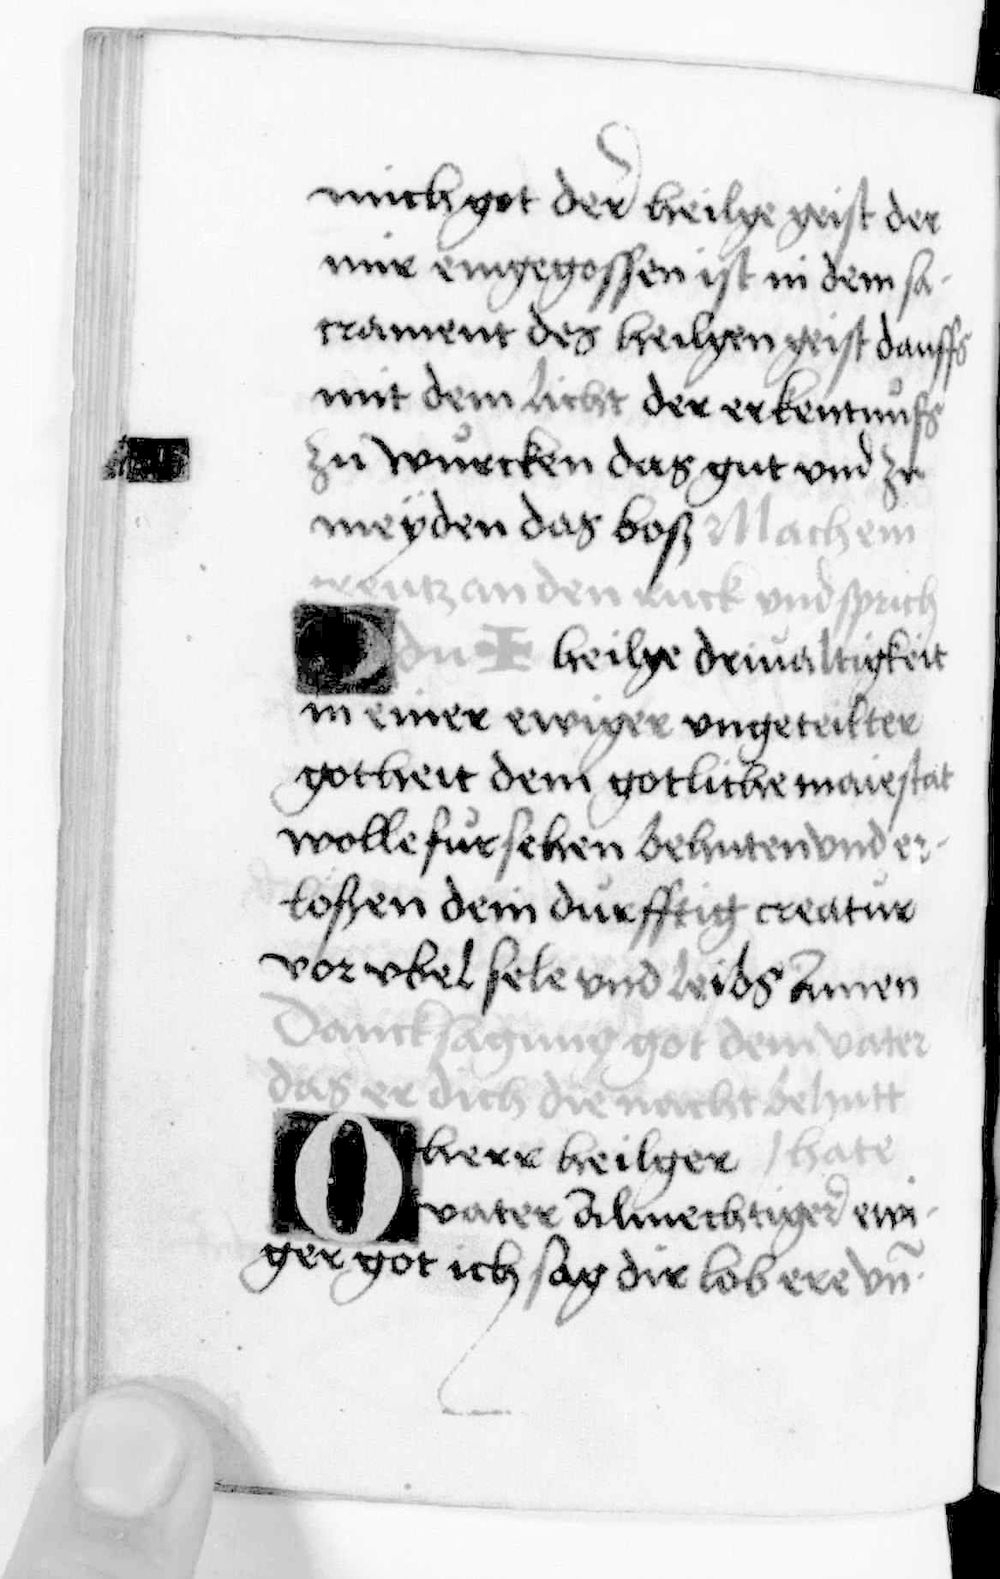 mich got der heilge geist der
mir eingegossen ist in dem sa-
crament des heilgen geist dauffs
mit dem licht der erkentnuß
zu wurcken das gut vnd zu
meÿden das boß Mach ein
creutz an den ruck vnd sprich
O du ✠ heilge driualtigkeit
in einer ewiger vngeteilter
gotheit dem gotliche maiestat
wolle fursehen behuten vnd er-
loßen dein durfftig creatur
vor vbel sele vnd leibs Amen
Dancksagung got dem vater
das er dich die nacht behutt
O herr heilger hate
vater Almechtiger ewi-
ger got ich sag dir lob ere vn̄